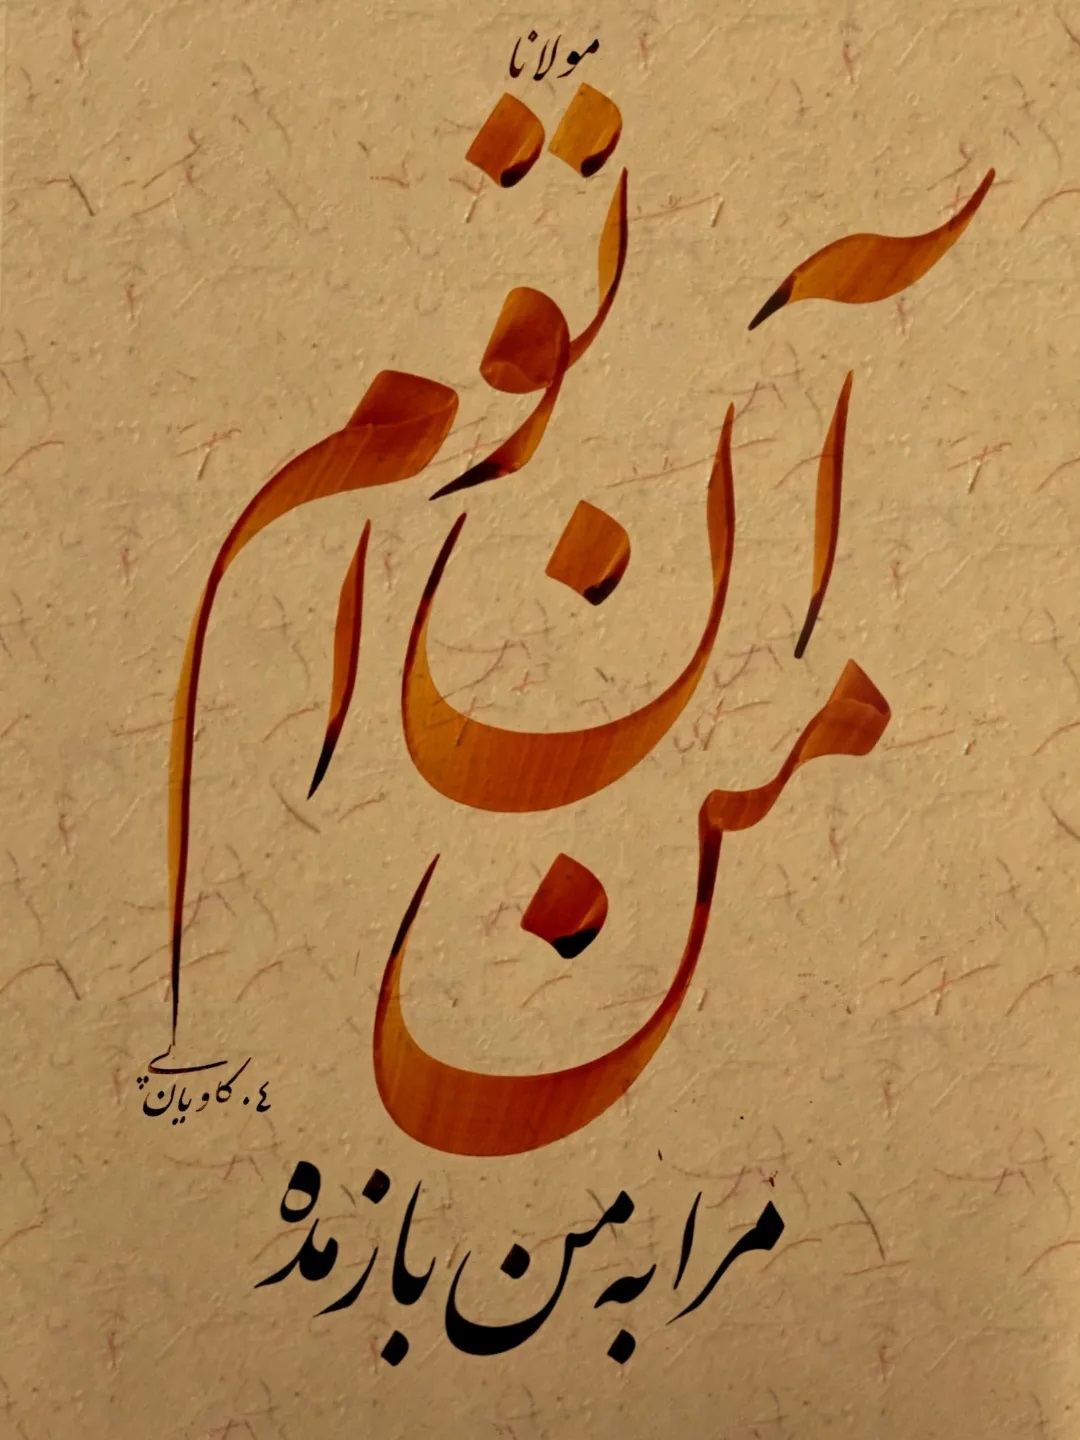 مولانا
من آن توام
مرا به من باز مده
کاویان‌پی ۰۴